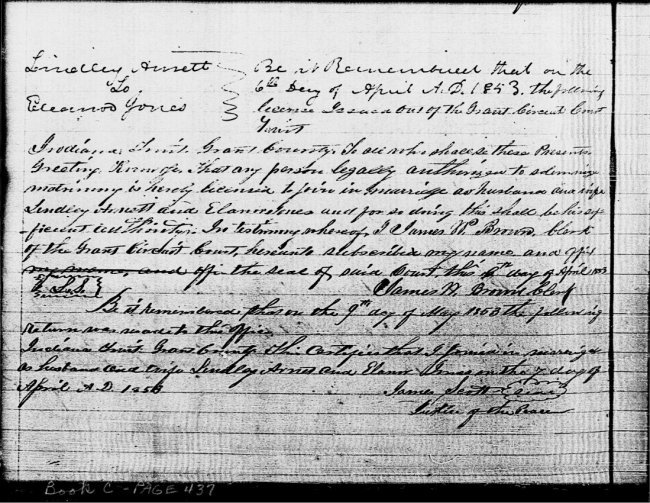 Lindley Arnett
To
Eleanor Jones
Be it Remembered that on the
6th Day of April A.D. 1853. the following
license Issued out of the Grant Circuit Court
Towit
Indiana Towit. Grant County. To all who shall see these Presents
Greeting. Know ye, that any person legally authorized to solemnize
matrimony is hereby licensed to join in marriage as husband and wife
Lindley Arnett and Jones and for so doing this shall be his suf
ficient authority. In testimony whereof, I James W. Brown, clerk
of the Grant Circuit Court, hereunto subscribed my name and affix
my name, and affix the seal of said Court, this 6th day of April 1853
L.S. James W. Brown Clerk
Be it remembered that on the 9th day of May 1853 the following
return was made to this office
Indiana towit Grant County this certifies that I joined in marriage
as husband and wife Lindley Arnett and Jones on the 7 day of
April A.D. 1853
James Scott
Justice of the Peace
Book C - PAGE 437